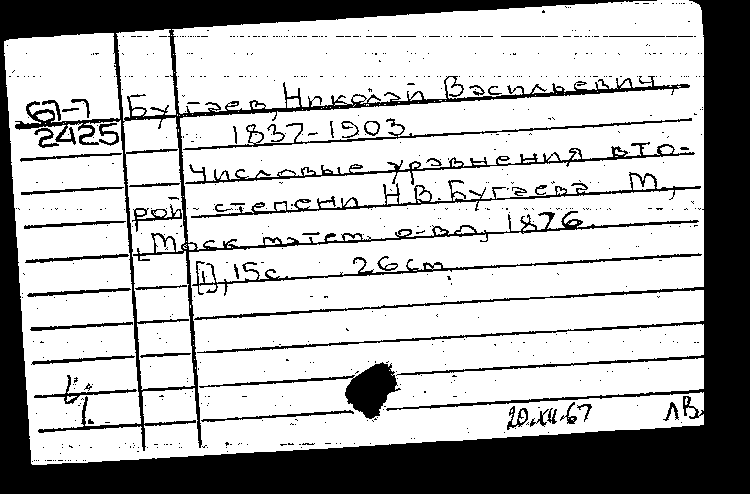 67-7
2425
Бугаев, Николай Васильевич,
1837-1903.
Числовые уравнения вто-
рой степени Н.В. Бугаева М.,
Моск. матем. о-во, 1876.
[1], 15с. 26 см.
Ц.
20.XII.67 ЛВ.